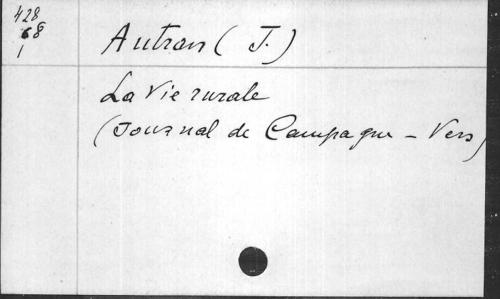 428
68
1
Autran (J.)
La Vie rurale
(Journal de Campagne - Vers)